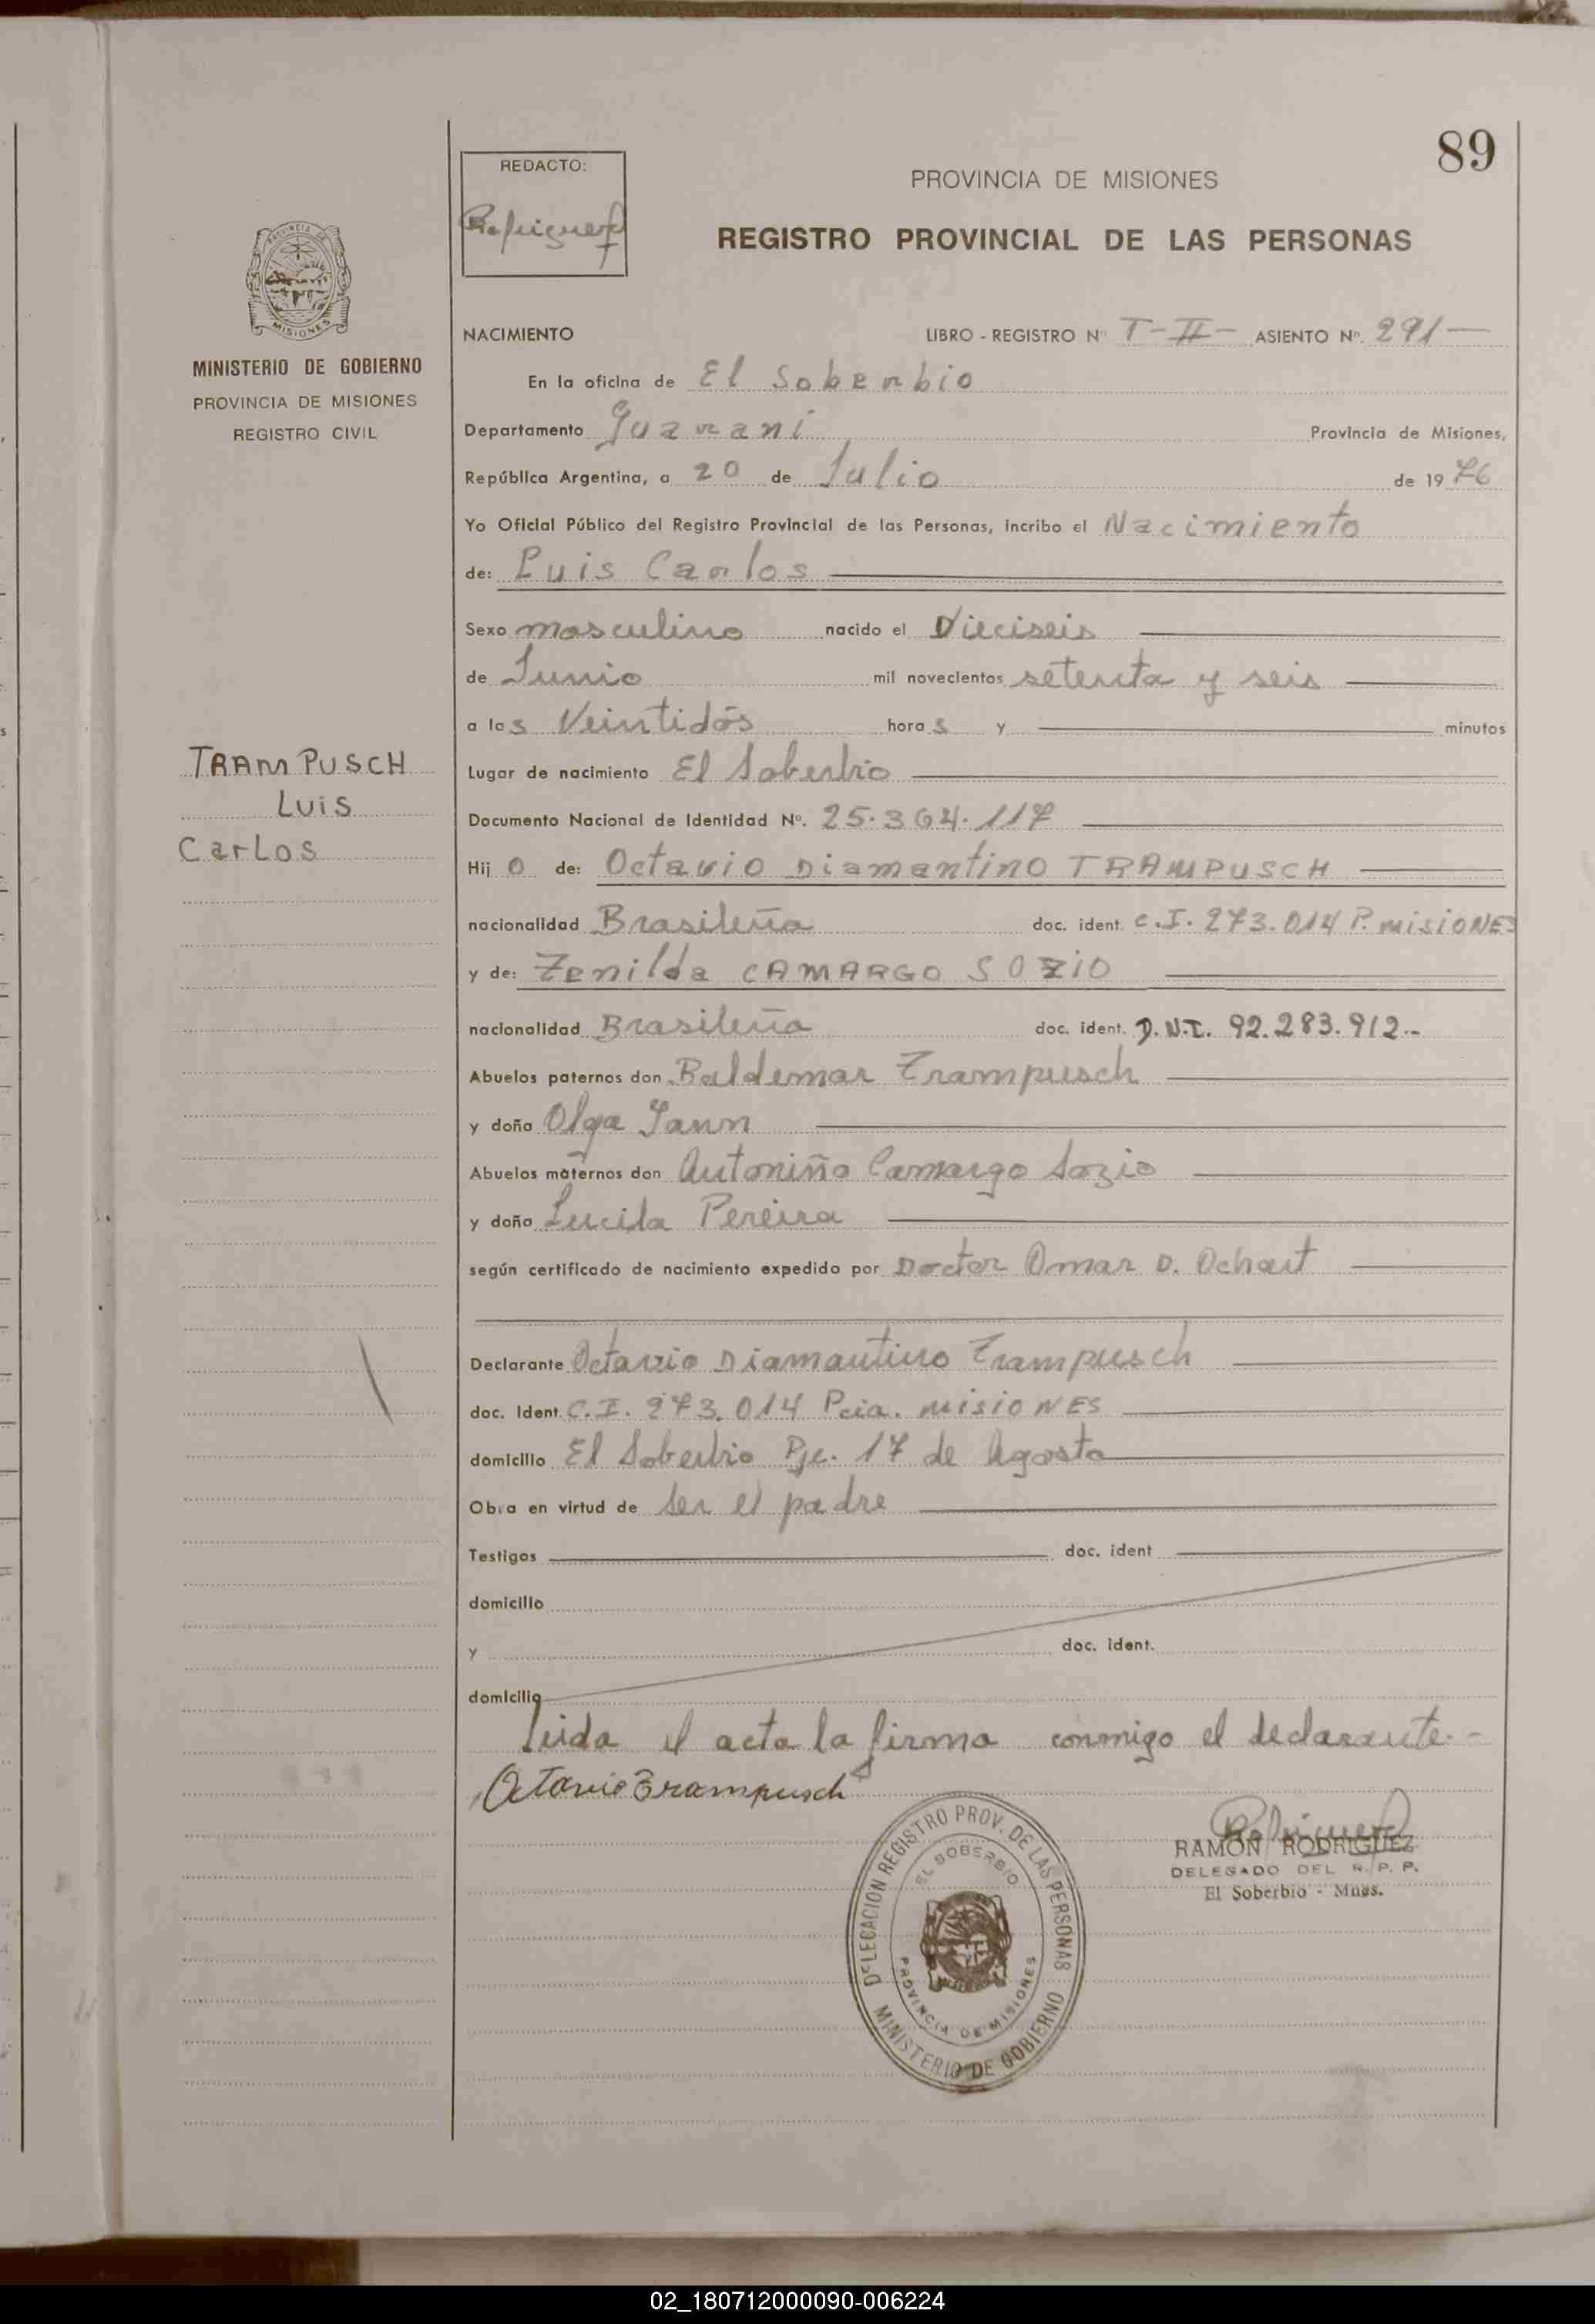 89
REDACTO:
PROVINCIA DE MISIONES
REGISTRO PROVINCIAL DE LAS PERSONAS
MISIONES
MINISTERIO DE GOBIERNO
PROVINCIA DE MISIONES
REGISTRO CIVIL
TRAMPUSCH
Luis
Carlos
NACIMIENTO LIBRO - REGISTRO Nº T-II- ASIENTO Nº. 291
En la oficina de El Soberbio
Departamento Guarani Provincia de Misiones,
República Argentina, a 20 de Julio de 1976
Yo Oficial Público del Registro Provincial de las Personas, incribo el Nacimiento
de: Luis Carlos
Sexo masculino nacido el Dieciseis
de Junio mil novecientos setenta y seis
a las Veintidós horas y minutos
Lugar de nacimiento El Soberbio
Documento Nacional de Identidad Nº. 25.364.117
Hijo de: Octavio Diamantino TRAMPUSCH
nacionalidad Brasileña doc. ident. C.I. 273.014 P. MISIONES
y de: Zenilda CAMARGO SOZIO
nacionalidad Brasileña doc. ident. D.N.I. 92.283.912.-
Abuelos paternos don Baldemar Trampusch
y doña Olga Jann
Abuelos maternos don Antoniño Camargo Sozio
y doña Lucila Pereira
según certificado de nacimiento expedido por Doctor Omar D. Ochart
Declarante Octavio Diamantino Trampusch
doc. Ident. C.I. 273.014 Pcia. MISIONES
domicilio El Soberbio Pje. 17 de Agosto
Obra en virtud de ser el padre
Testigos doc. ident
domicilio
y doc. ident.
domicilio
leida el acta la firma conmigo el declarante.-
Octavio Trampusch
RAMÓN RODRIGUEZ
DELEGADO DEL R. P. P.
El Soberbio - Mnes.
DELEGACION REGISTRO PROV. DE LAS PERSONAS
EL SOBERBIO
PROVINCIA DE MISIONES
MINISTERIO DE GOBIERNO
02_180712000090-006224